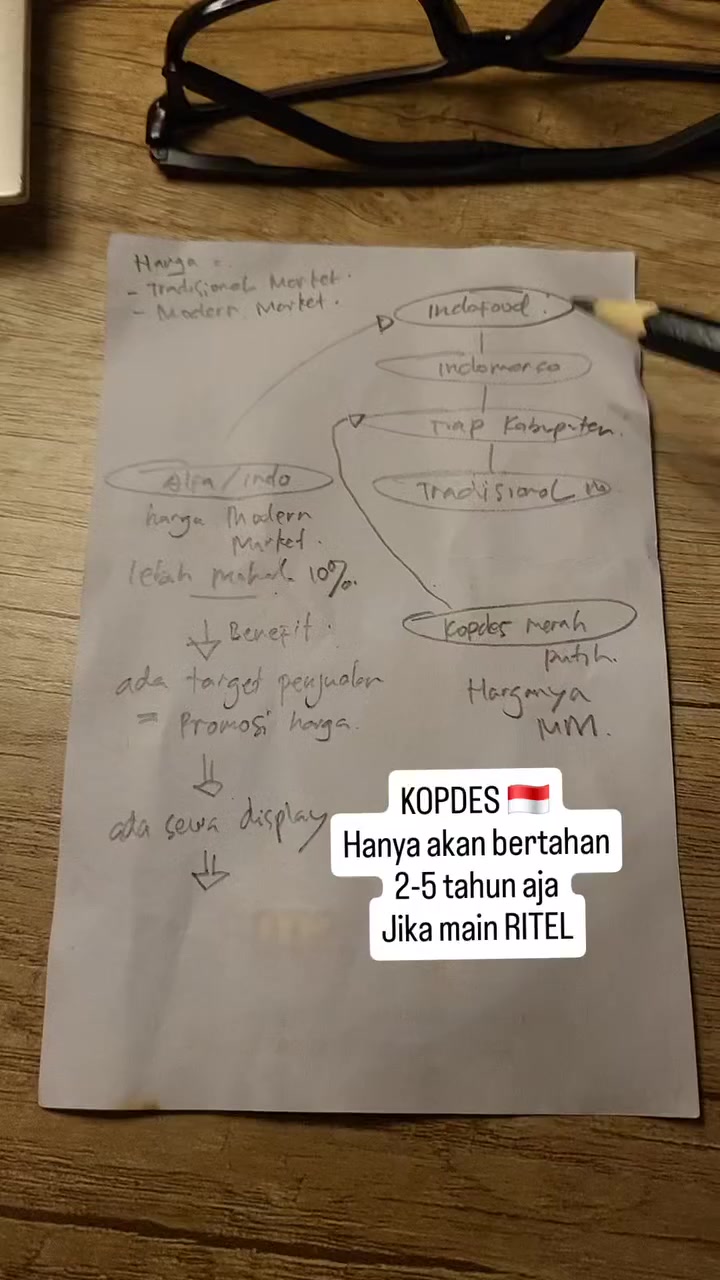 Harga =
- Tradisional Market.
- Modern Market.
Indofood
Indomarco
Tiap Kabupaten.
Tradisional
Alfa/indo
harga Modern
Market.
lebih mahal 10%.
Benefit.
ada target penjualan
= Promosi harga.
ada sewa display
Kopdes merah
putih.
Harganya
MM.
KOPDES 🇮🇩
Hanya akan bertahan
2-5 tahun aja
Jika main RITEL